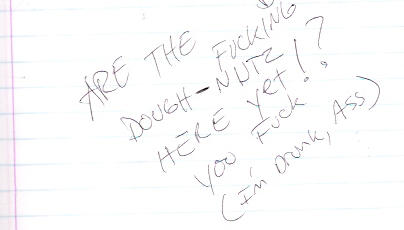 ARE THE FUCKING
DOUGH-NUTZ
HERE YET!?
YOU FUCK!!
(I'm Drunk, Ass)